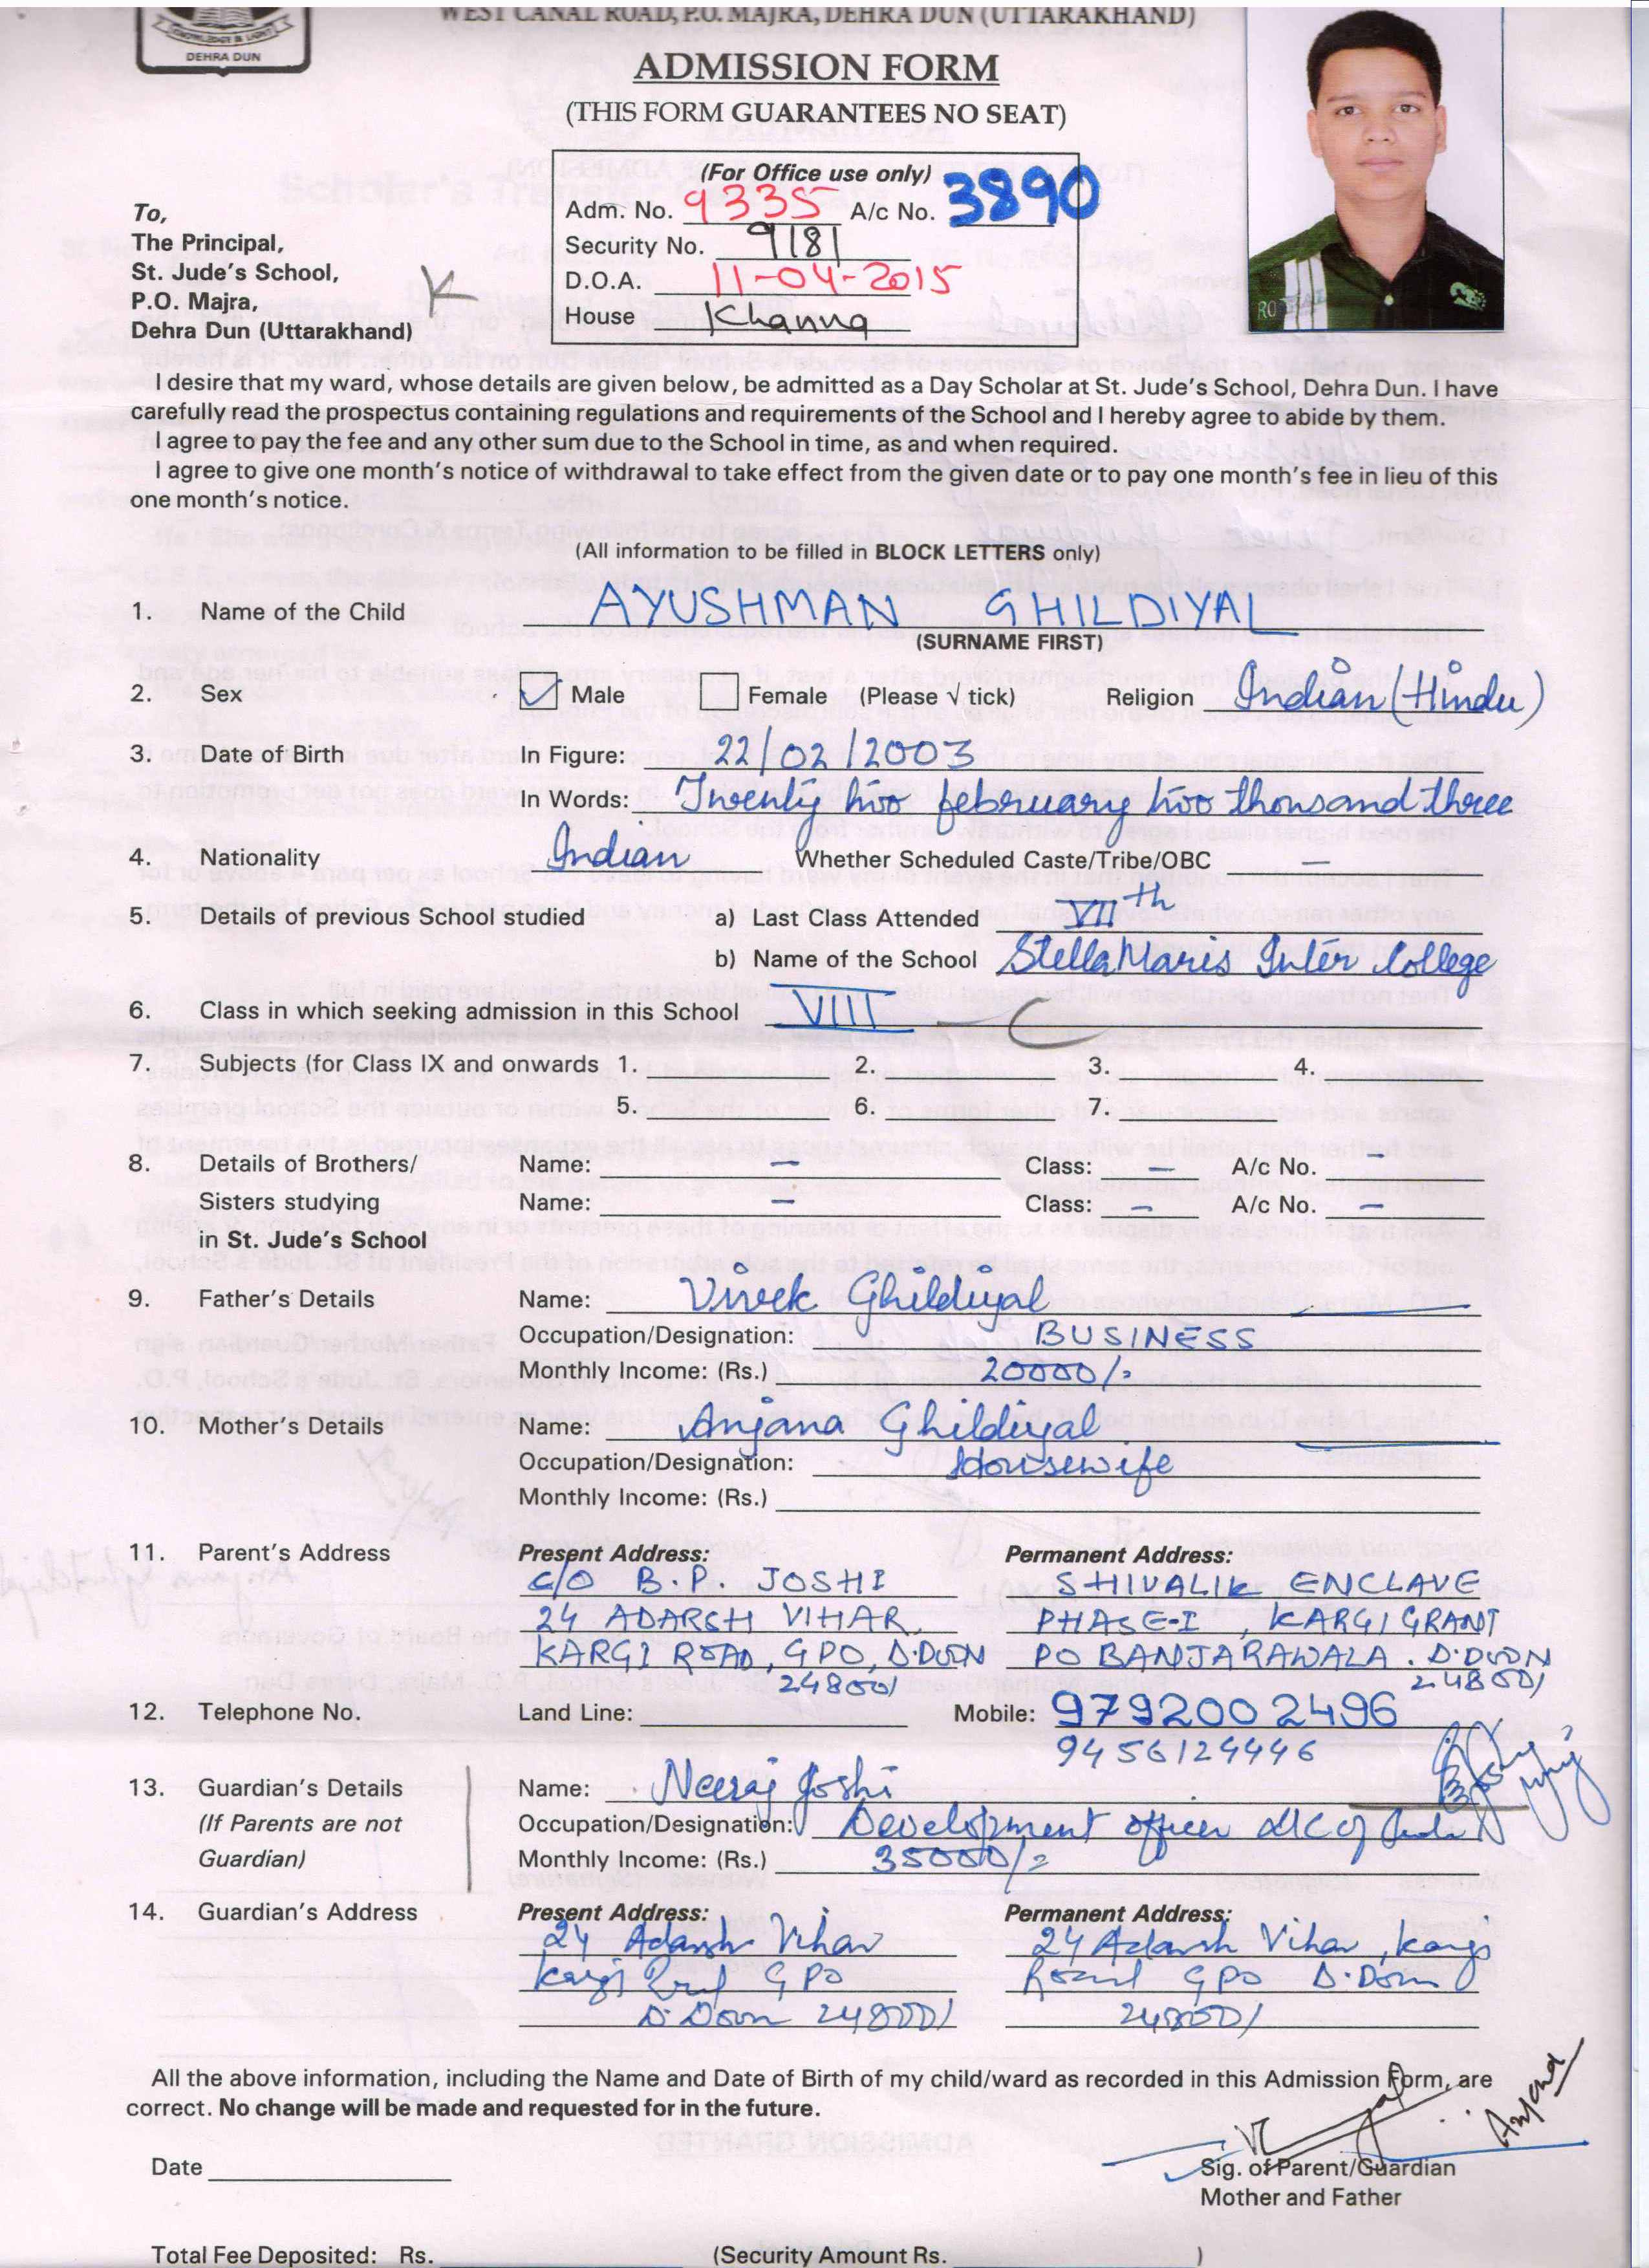 WEST CANAL ROAD, P.O. MAJRA, DEHRA DUN (UTTARAKHAND)
KNOWLEDGE IS LIGHT
DEHRA DUN
ADMISSION FORM
(THIS FORM GUARANTEES NO SEAT)
(For Office use only)
Adm. No. 9335 A/c No. 3890
Security No. 9181
D.O.A. 11-04-2015
House Khanna
To,
The Principal,
St. Jude's School,
P.O. Majra,
Dehra Dun (Uttarakhand)
I desire that my ward, whose details are given below, be admitted as a Day Scholar at St. Jude's School, Dehra Dun. I have
carefully read the prospectus containing regulations and requirements of the School and I hereby agree to abide by them.
I agree to pay the fee and any other sum due to the School in time, as and when required.
I agree to give one month's notice of withdrawal to take effect from the given date or to pay one month's fee in lieu of this
one month's notice.
(All information to be filled in BLOCK LETTERS only)
1. Name of the Child AYUSHMAN GHILDIYAL
(SURNAME FIRST)
2. Sex Male Female (Please √ tick) Religion Indian (Hindu)
3. Date of Birth In Figure: 22/02/2003
In Words: Twenty two february two thousand three
4. Nationality Indian Whether Scheduled Caste/Tribe/OBC —
5. Details of previous School studied a) Last Class Attended VIIth
b) Name of the School Stella Maris Inter College
6. Class in which seeking admission in this School VIII — C
7. Subjects (for Class IX and onwards 1. 2. 3. 4.
5. 6. 7.
8. Details of Brothers/ Name: — Class: — A/c No. —
Sisters studying Name: — Class: — A/c No. —
in St. Jude's School
9. Father's Details Name: Vivek Ghildiyal
Occupation/Designation: BUSINESS
Monthly Income: (Rs.) 20000/-
10. Mother's Details Name: Anjana Ghildiyal
Occupation/Designation: Housewife
Monthly Income: (Rs.)
11. Parent's Address Present Address: Permanent Address:
C/O B.P. JOSHI SHIVALIK ENCLAVE
24 ADARSH VIHAR, PHASE-I, KARGI GRANT
KARGI ROAD, GPO, D.DOON PO BANJARAWALA. D.DOON
248001 248001
12. Telephone No. Land Line: Mobile: 9792002496
9456124446
13. Guardian's Details Name: Neeraj Joshi
(If Parents are not Occupation/Designation: Development officer LIC of India
Guardian) Monthly Income: (Rs.) 35000/-
14. Guardian's Address Present Address: Permanent Address:
24 Adarsh Vihar 24 Adarsh Vihar, Kargi
Kargi Road GPO Road GPO D.Doon
D.Doon 248001 248001
All the above information, including the Name and Date of Birth of my child/ward as recorded in this Admission Form, are
correct. No change will be made and requested for in the future.
Anjana
Date Sig. of Parent/Guardian
Mother and Father
Total Fee Deposited: Rs. (Security Amount Rs. )